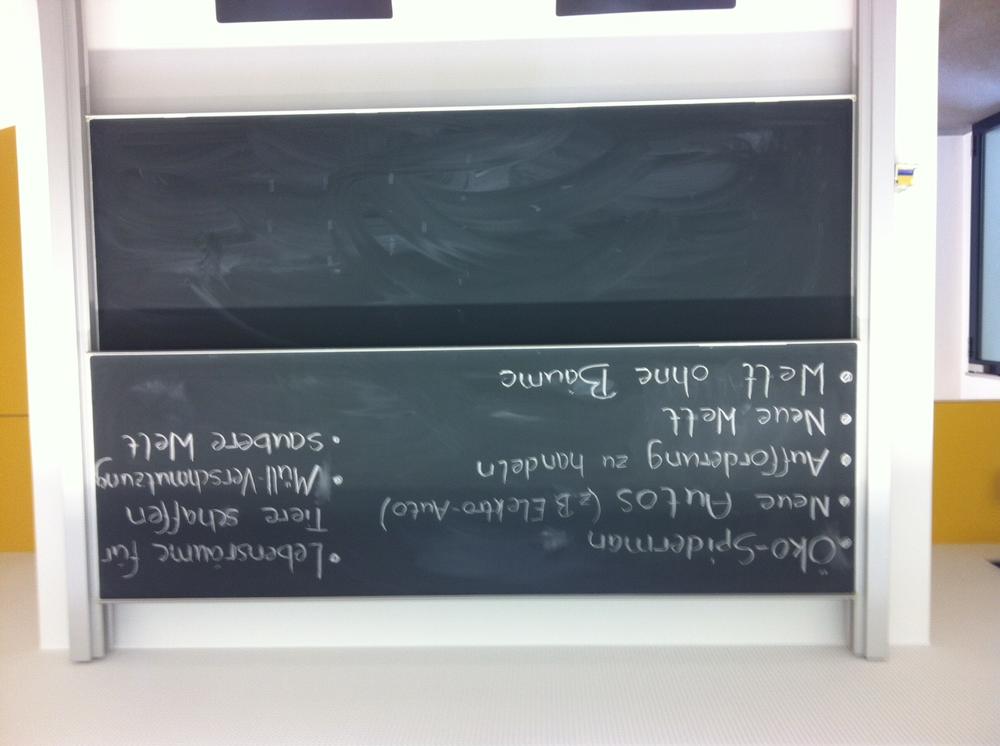 • Öko-Spiderman
• Neue Autos (z.B Elektro-Auto)
• Aufforderung zu handeln
• Neue Welt
• Welt ohne Bäume
• Lebensräume für
Tiere schaffen
• Müll-Verschmutzung
• saubere Welt